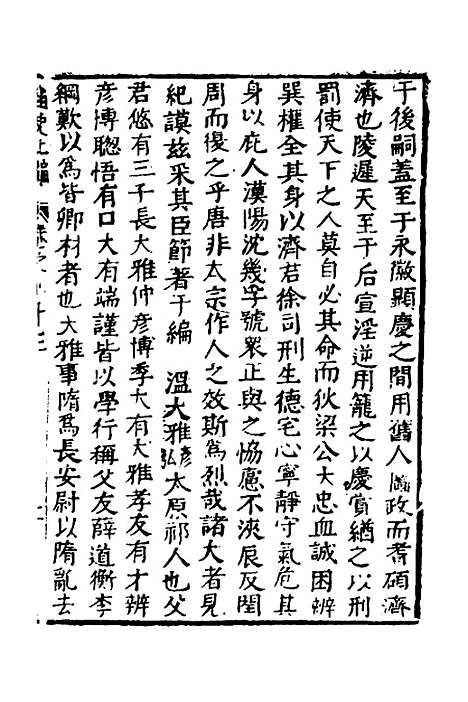 于後嗣蓋至于永徽顯慶之間用舊人圖政而耆碩濟
濟也陵遲天至于后宣淫逆用籠之以慶賞緧之以刑
罰使天下之人莫自必其命而狄梁公大忠血誠困辨
巽權全其身以濟若徐司刑生德宅心寧靜守氣危其
身以庇人漢陽沈幾孚號衆正與之恊慮不浹辰反閏
周而復之乎唐非太宗作人之效斯爲烈哉諸大者見
紀謨兹采其臣節著于編 溫大雅彦弘太原祁人也父
君悠有三子長大雅仲彦博季大有大雅孝友有才辨
彦博聰悟有口大有端謹皆以學行稱父友薛道衡李
綱歎以爲皆卿材者也大雅事隋爲長安尉以隋亂去
函史上編